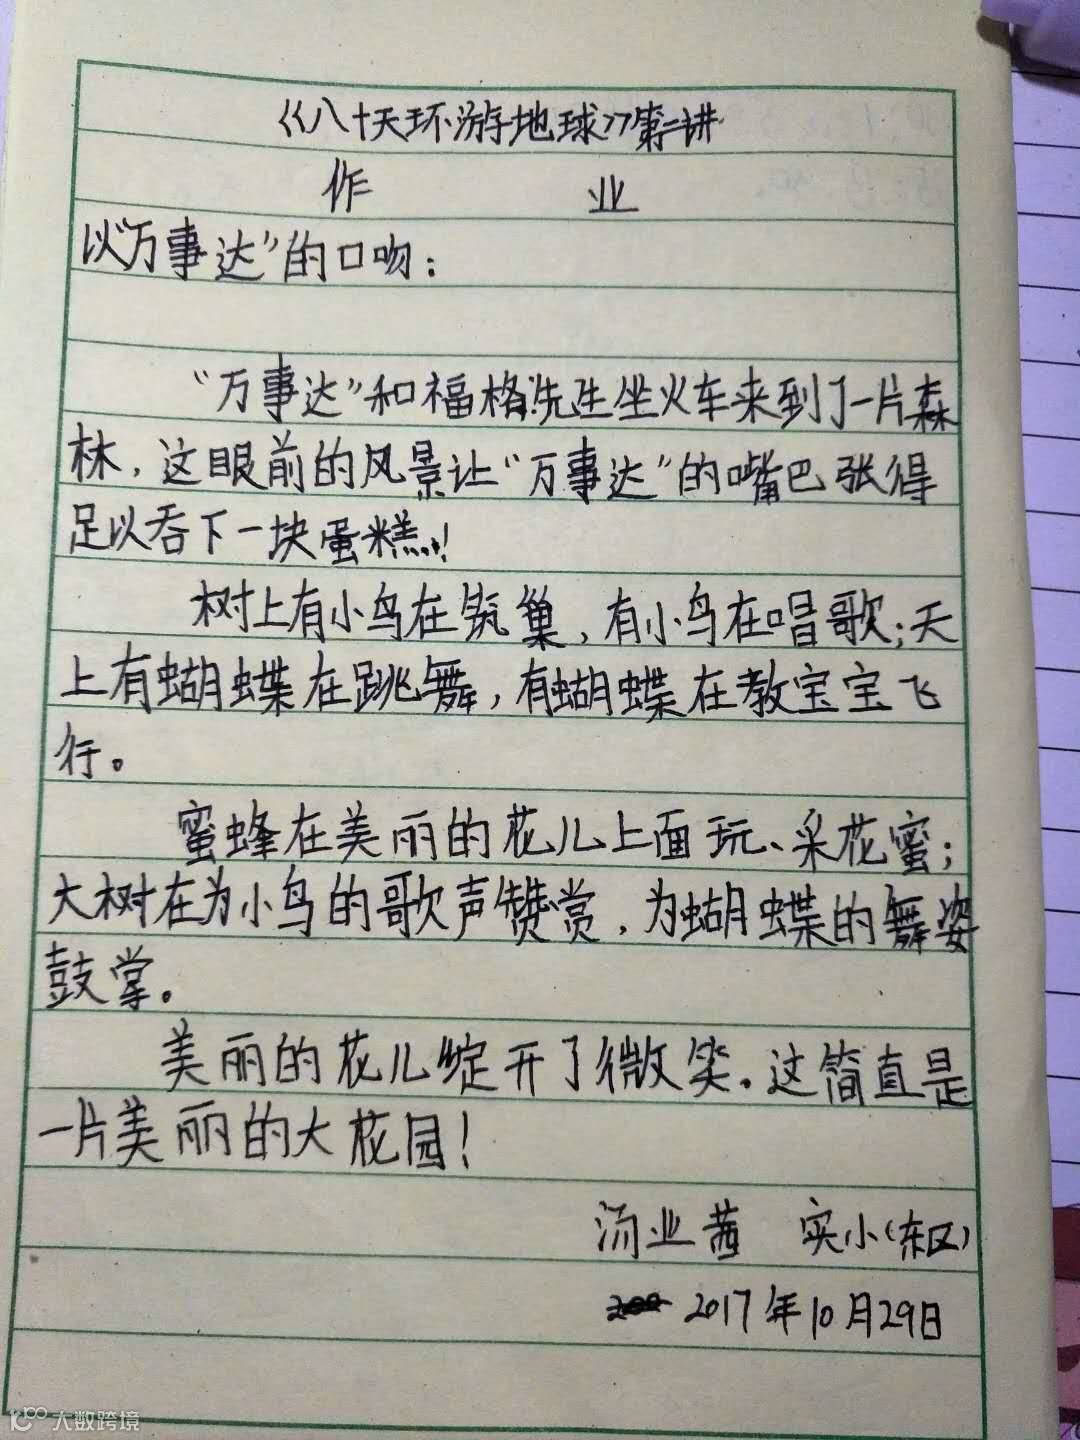 《八十天环游地球》第二讲
作 业
以“万事达”的口吻：
“万事达”和福格先生坐火车来到了一片森
林，这眼前的风景让“万事达”的嘴巴张得
足以吞下一块蛋糕…！
树上有小鸟在筑巢，有小鸟在唱歌；天
上有蝴蝶在跳舞，有蝴蝶在教宝宝飞
行。
蜜蜂在美丽的花儿上面玩、采花蜜；
大树在为小鸟的歌声赞赏，为蝴蝶的舞姿
鼓掌。
美丽的花儿绽开了微笑。这简直是
一片美丽的大花园！
汤业茜 实小（东区）
2017年10月29日
大数跨境